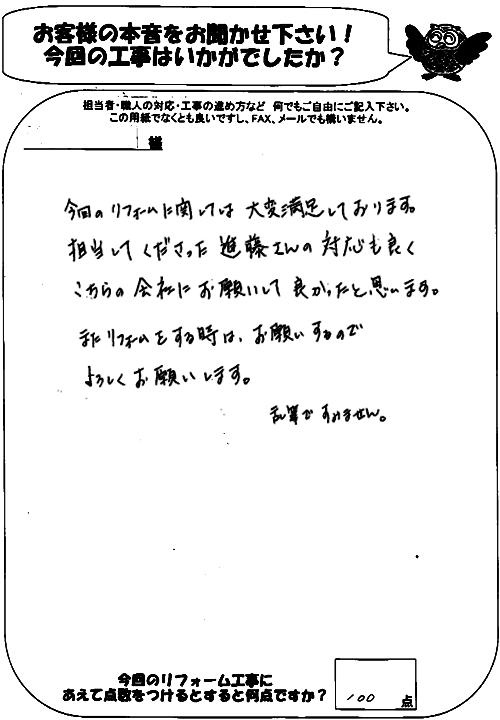 お客様の本音をお聞かせ下さい！
今回の工事はいかがでしたか？
担当者・職人の対応・工事の進め方など 何でもご自由にご記入下さい。
この用紙でなくとも良いですし、FAX、メールでも構いません。
様
今回のリフォームに関しては大変満足しております。
担当してくださった進藤さんの対応も良く
こちらの会社にお願いして良かったと思います。
またリフォームをする時は、お願いするので
よろしくお願いします。
乱筆ですみません。
今回のリフォーム工事に
あえて点数をつけるとすると何点ですか？ 100 点